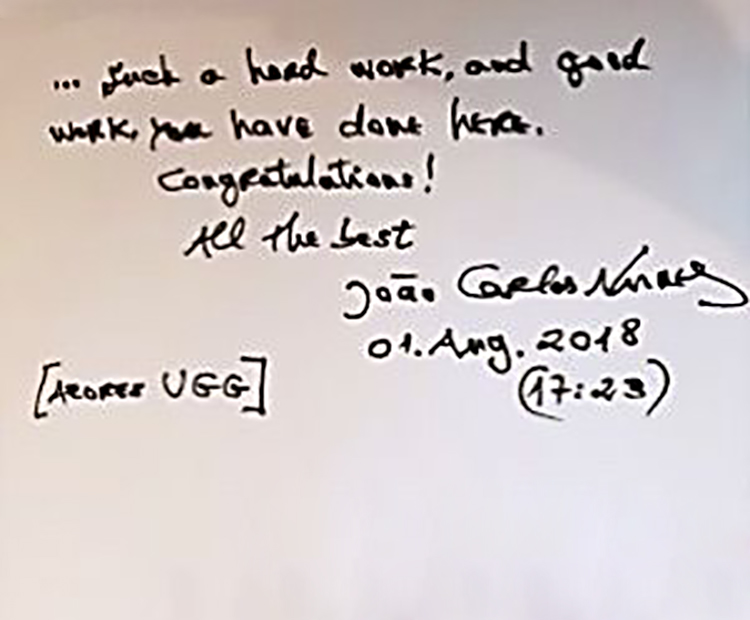 ... such a hard work, and good
work, you have done here.
Congratulations!
All the best
João Carlos Nunes
01. Aug. 2018
(17:23)
[AZORES UGG]